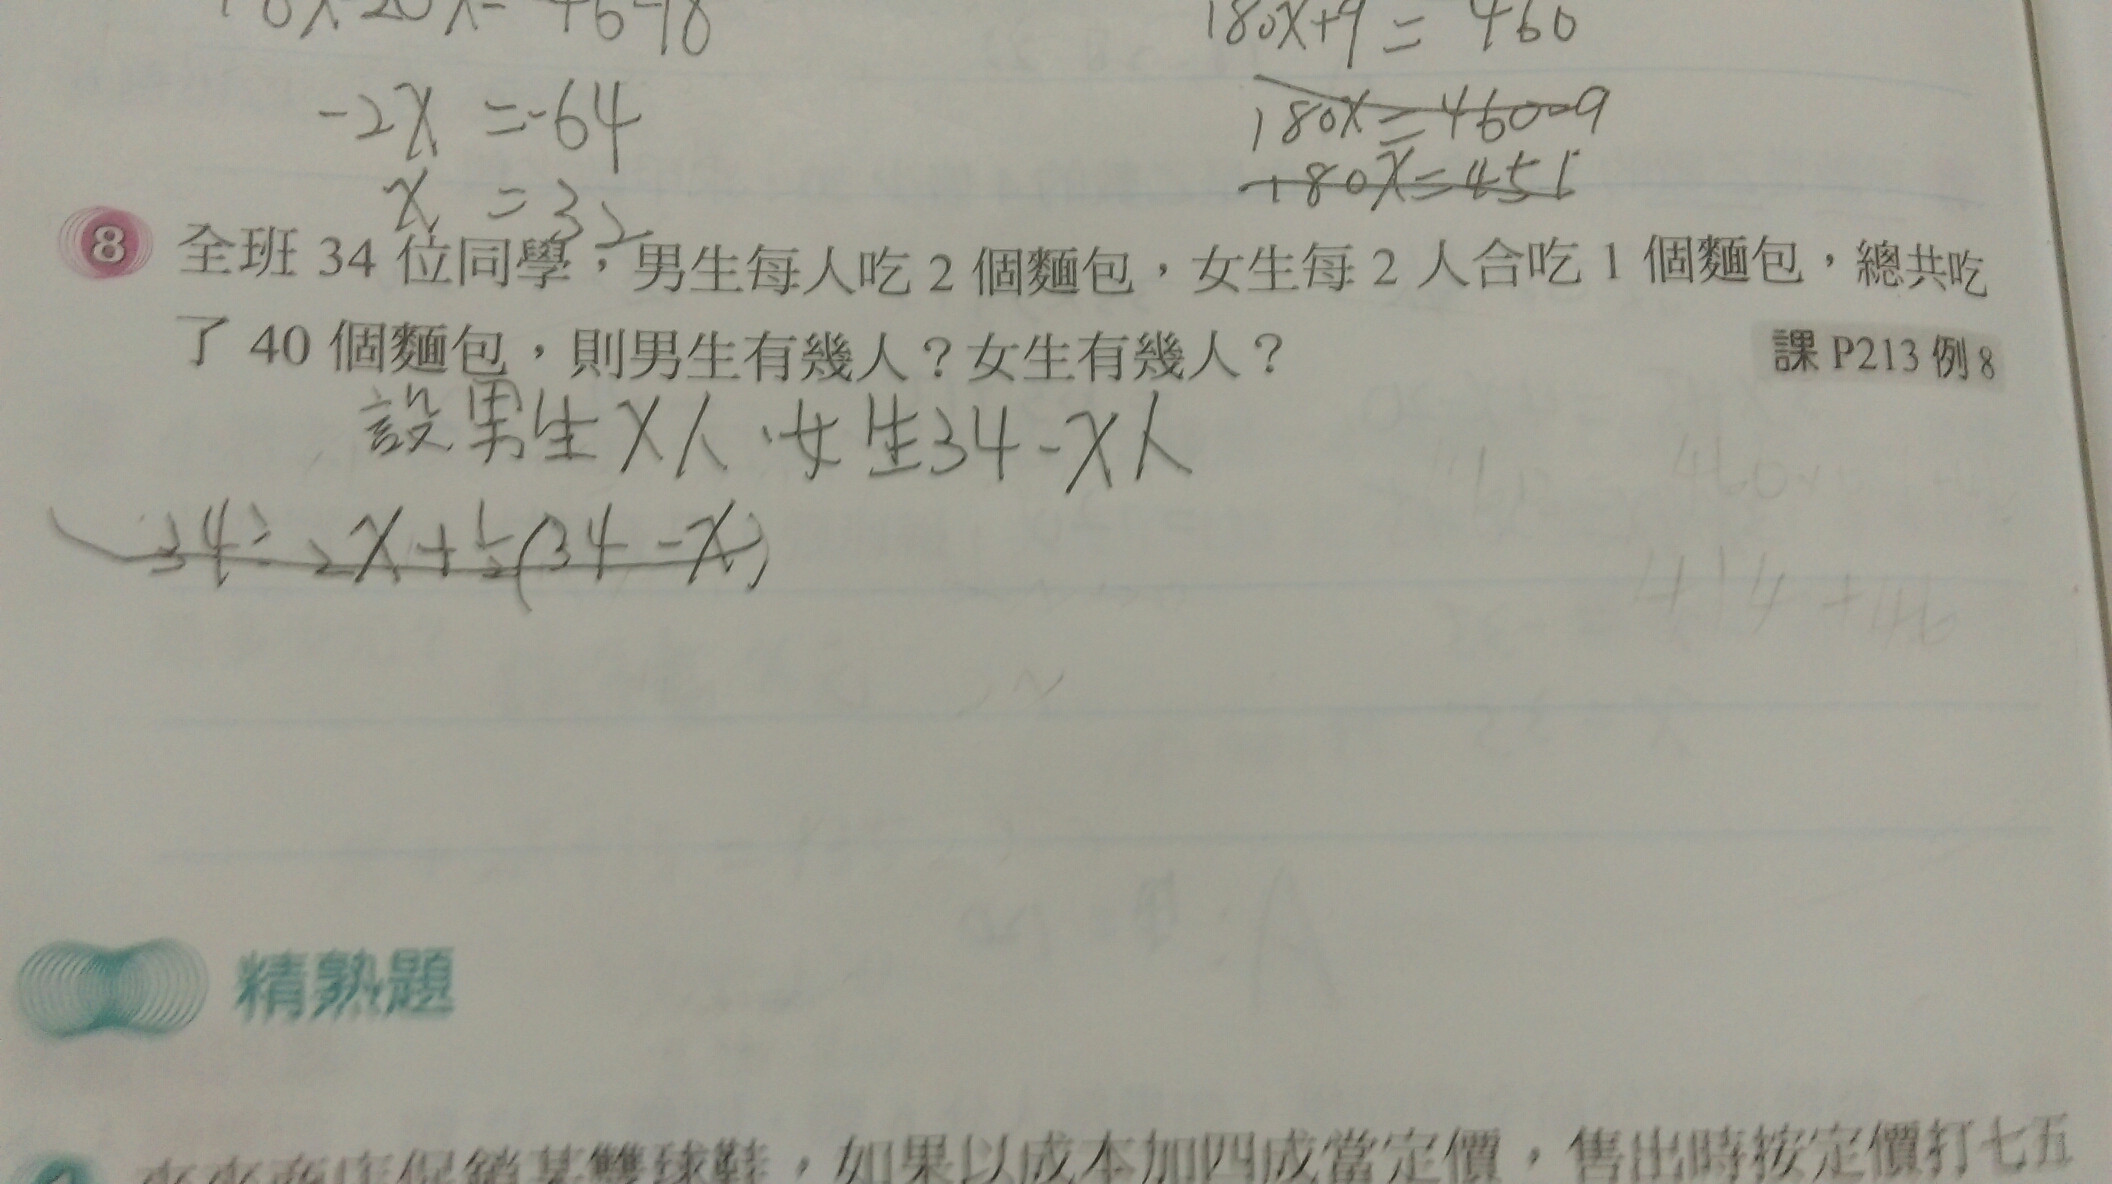 180x+9=460
-2x=-64
180x=460-9
180x=451
x=32
8 全班 34 位同學，男生每人吃 2 個麵包，女生每 2 人合吃 1 個麵包，總共吃
了 40 個麵包，則男生有幾人？女生有幾人？ 課 P213 例 8
設男生x人，女生34-x人
34=2x+1/2(34-x)
精熟題
如果以成本加四成當定價，售出時按定價打七五